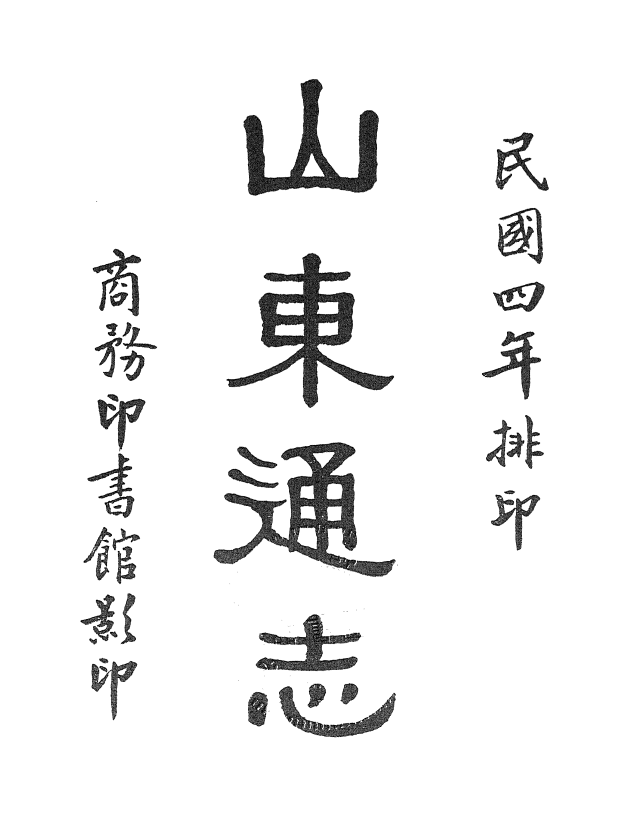 民國四年排印
山東通志
商務印書館影印